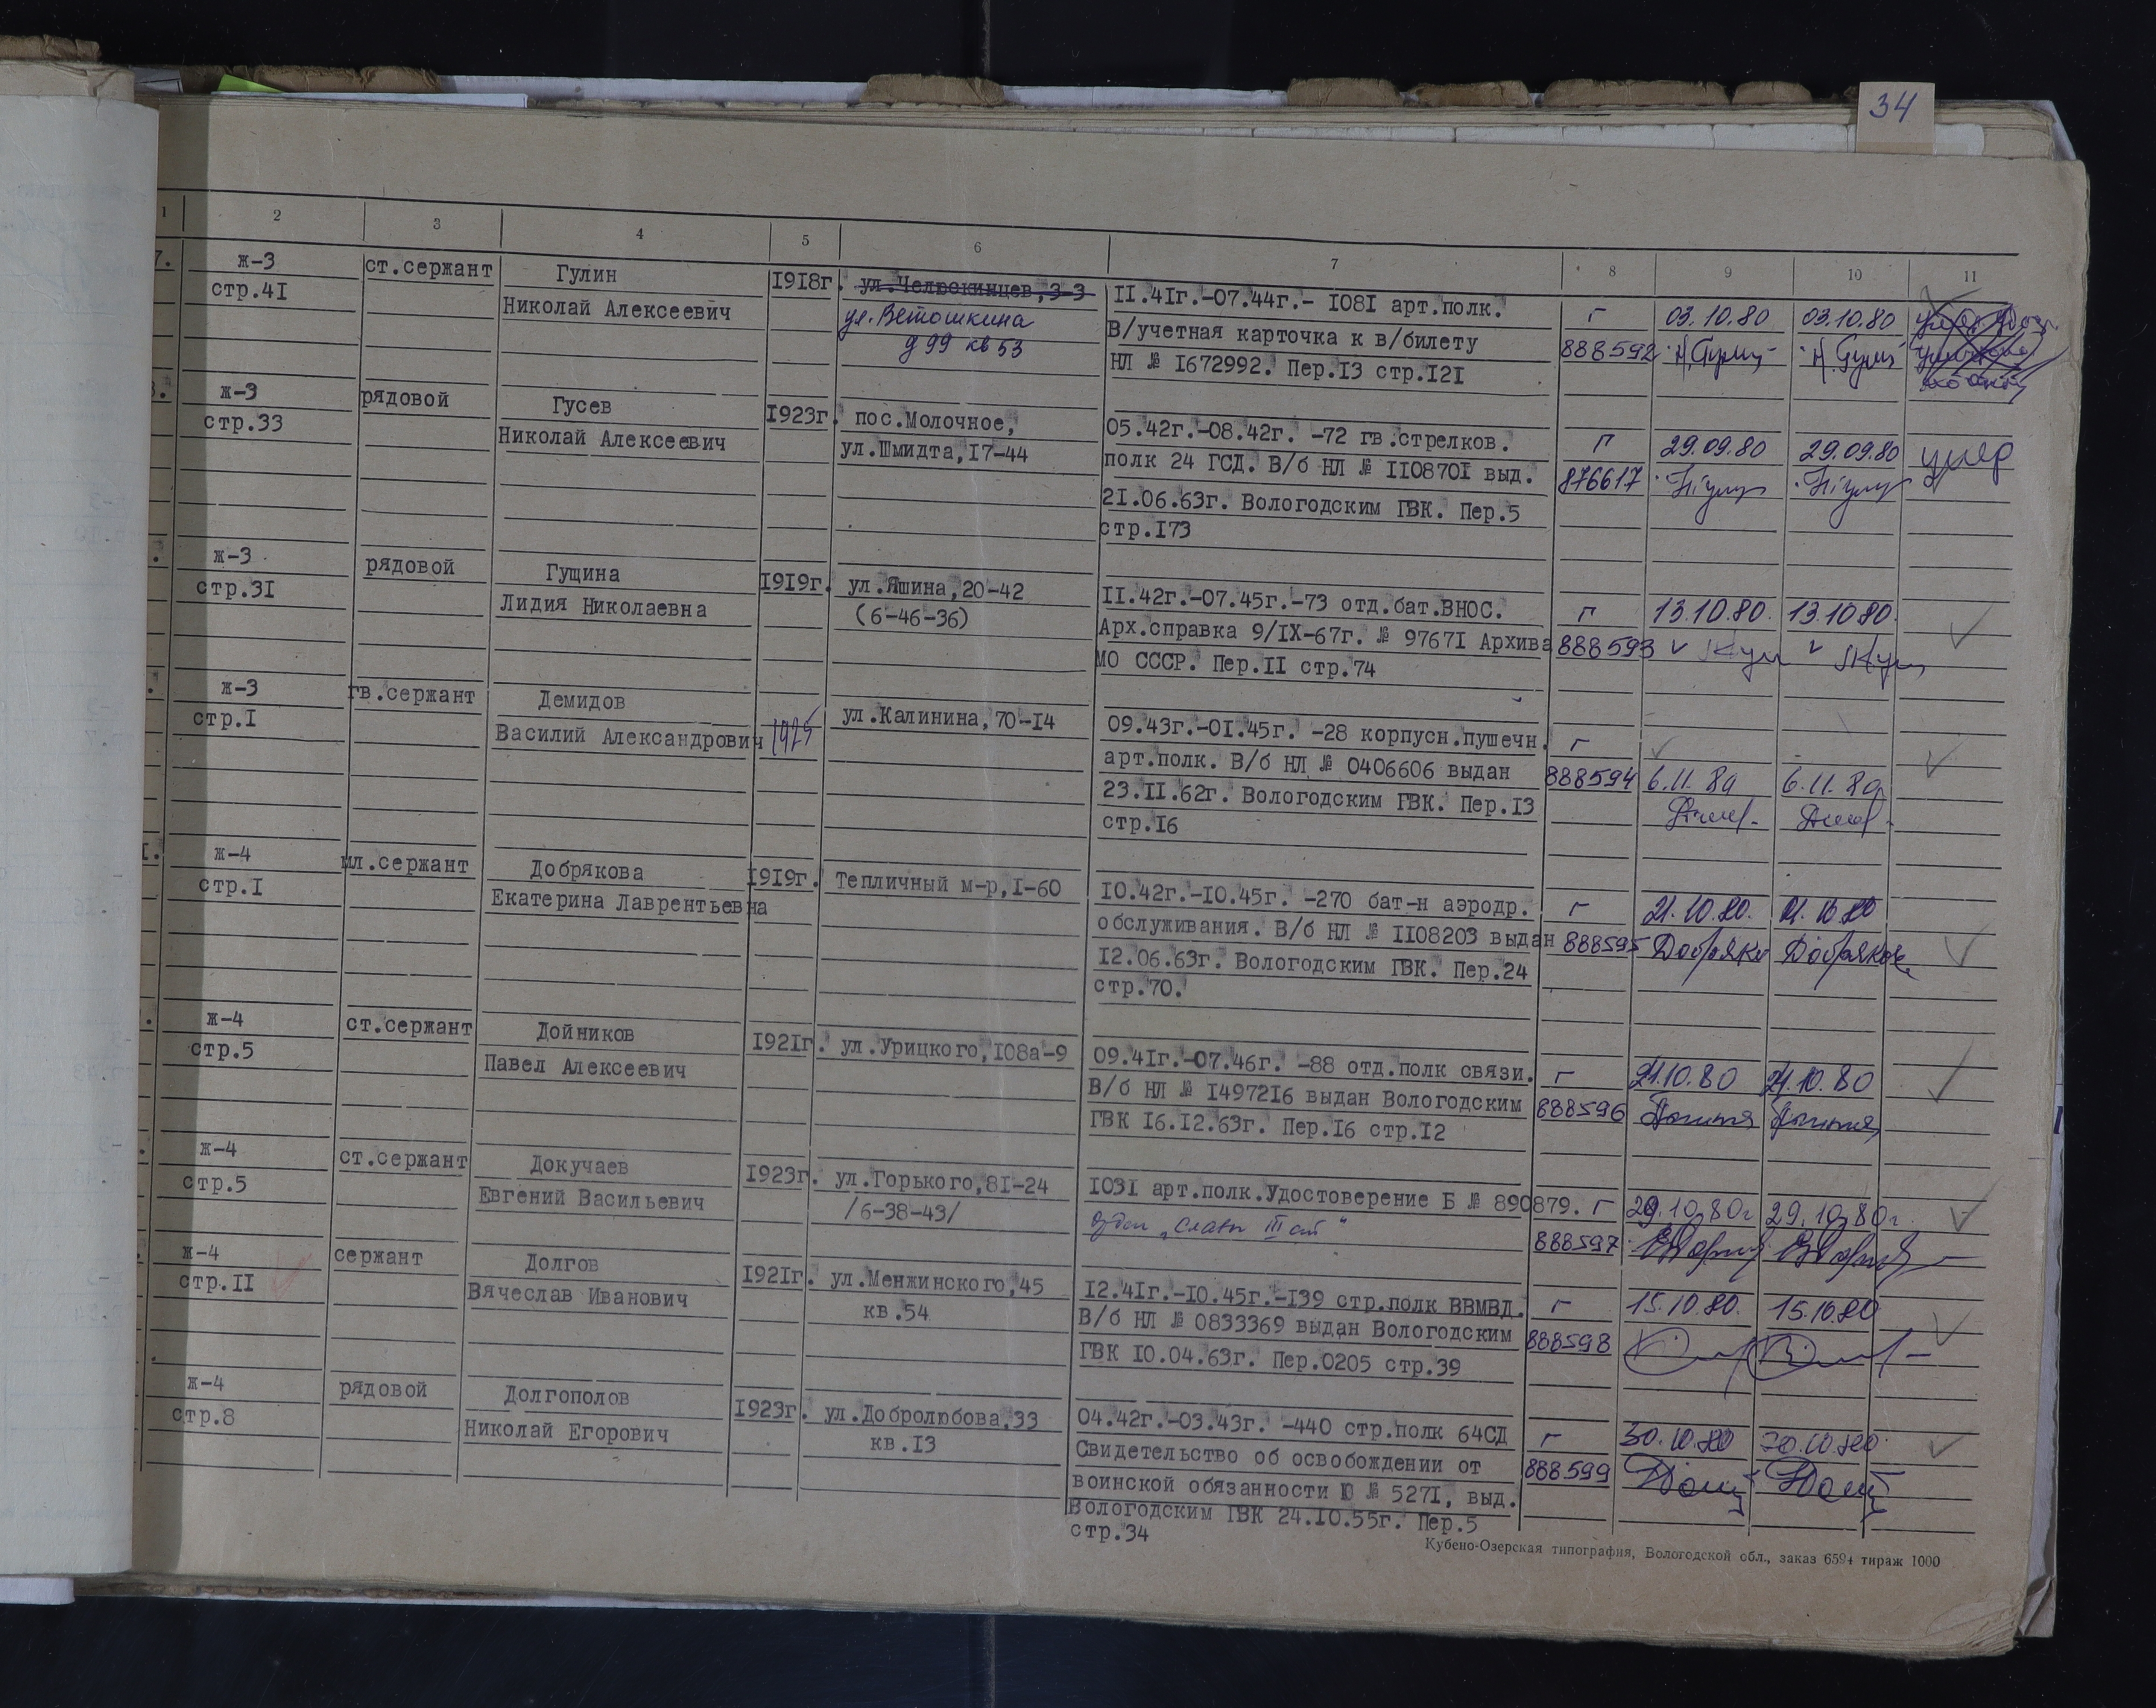 34
1 2 3 4 5 6 7 8 9 10 11
7. ж-3 ст.сержант Гулин 1918г. ул.Челюскинцев,3-3 11.41г.-07.44г.- 1081 арт.полк. г 03.10.80 03.10.80
стр.41 Николай Алексеевич ул. Ветошкина В/учетная карточка к в/билету 888592
д 99 кв 53 НЛ № 1672992. Пер.13 стр.121
8. ж-3 рядовой Гусев 1923г. пос.Молочное, 05.42г.-08.42г. -72 гв.стрелков. г 29.09.80 29.09.80 умер
стр.33 Николай Алексеевич ул.Шмидта,17-44 полк 24 ГСД. В/б НЛ № 1108701 выд. 876617
21.06.63г. Вологодским ГВК. Пер.5
стр.173
ж-3 рядовой Гущина 1919г. ул.Яшина,20-42 11.42г.-07.45г.-73 отд.бат.ВНОС. г 13.10.80. 13.10.80.
стр.31 Лидия Николаевна (6-46-36) Арх.справка 9/IX-67г. № 97671 Архива 888593
МО СССР. Пер.11 стр.74
ж-3 гв.сержант Демидов 1925 ул.Калинина,70-14 09.43г.-01.45г. -28 корпусн.пушечн. г
стр.1 Василий Александрович арт.полк. В/б НЛ № 0406606 выдан 888594 6.11.80 6.11.80
23.11.62г. Вологодским ГВК. Пер.13
стр.16
1. ж-4 мл.сержант Добрякова 1919г. Тепличный м-р,1-60 10.42г.-10.45г. -270 бат-н аэродр. г 21.10.80. 21.10.80
стр.1 Екатерина Лаврентьевна обслуживания. В/б НЛ № 1108203 выдан 888595 Добряко Добрякова
12.06.63г. Вологодским ГВК. Пер.24
стр.70.
ж-4 ст.сержант Дойников 1921г. ул.Урицкого,108а-9 09.41г.-07.46г. -88 отд.полк связи. г 21.10.80 21.10.80
стр.5 Павел Алексеевич В/б НЛ № 1497216 выдан Вологодским 888596
ГВК 16.12.63г. Пер.16 стр.12
ж-4 ст.сержант Докучаев 1923г. ул.Горького,81-24 1031 арт.полк.Удостоверение Б № 890879. г 29.10.80г 29.10.80г.
стр.5 Евгений Васильевич /6-38-43/ „Славы III ст" 888597
ж-4 сержант Долгов 1921г. ул.Менжинского,45 12.41г.-10.45г.-139 стр.полк ВВМВД. г 15.10.80. 15.10.80
стр.11 Вячеслав Иванович кв.54 В/б НЛ № 0833369 выдан Вологодским 888598
ГВК 10.04.63г. Пер.0205 стр.39
ж-4 рядовой Долгополов 1923г. ул.Добролюбова,33 04.42г.-03.43г. -440 стр.полк 64СД г 30.10.80 30.10.80
стр.8 Николай Егорович кв.13 Свидетельство об освобождении от 888599
воинской обязанности Ю № 5271, выд.
Вологодским ГВК 24.10.55г. Пер.5
стр.34
Кубено-Озерская типография, Вологодской обл., заказ 6594 тираж 1000